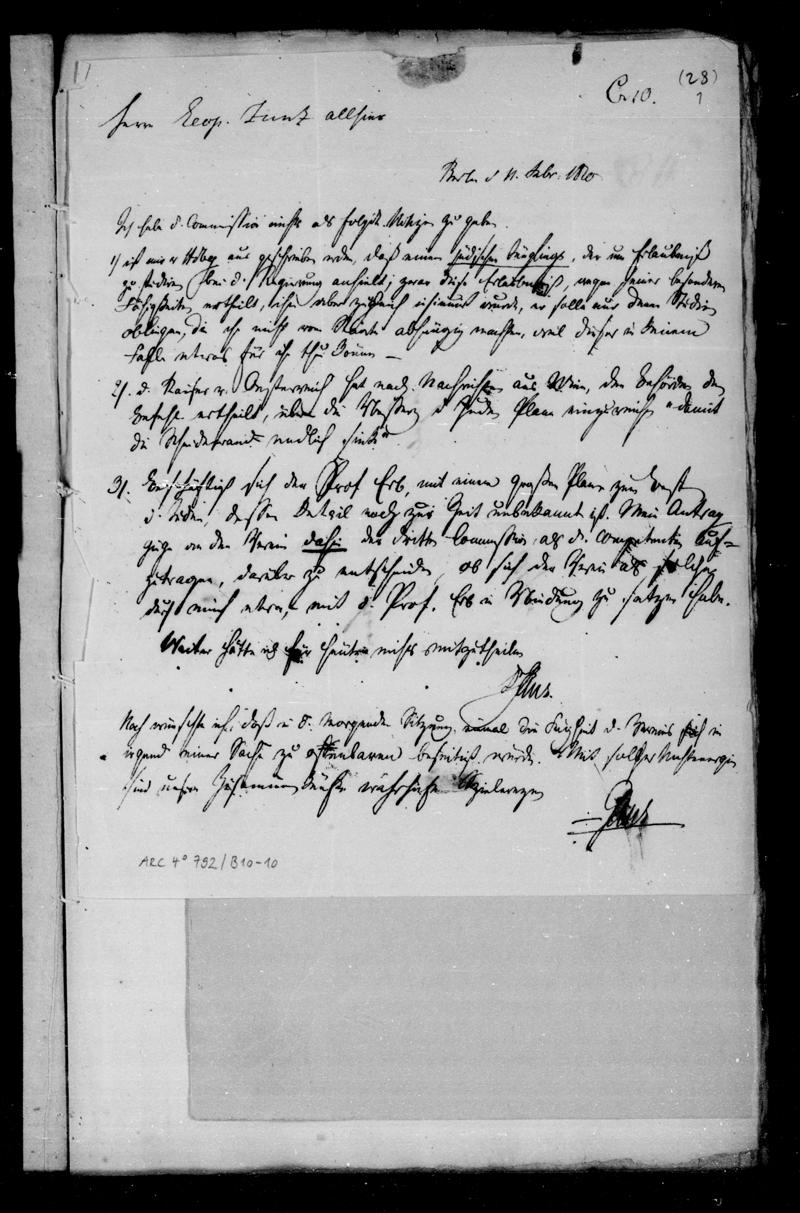 (28)
1
Herrn Leop. Zunz allhier
Berlin d 11. Febr. 1820
Ich habe d. Commission nichts als folgde. Notizen zu geben.
1) ist mir v. aus geschrieben worden, daß einem jüdischen Jünglinge, der um Erlaubniß
zu studiren bei d. Regierung anhielt, zwar diese Erlaubniß, wegen seiner besondern
Fähigkeiten ertheilt, ihm aber zugleich wurde, er solle nur dem Studium
obliegen, da ihn nicht vom Staate abhängig machen, weil dieser in keinem
Falle etwas für ihn thun könne —
2). d. Kaiser v. Oesterreich hat nach Nachrichten aus Wien, den Behörden den
Befehl ertheilt, über die d Juden Plane einzureichen "damit
die Scheidewand endlich sinke".
3). Beschäftigt sich der Prof Erb, mit einem großen Plane zum Besten
d. Juden, dessen Detail noch zur Zeit unbekannt ist. Mein Antrag
ginge an den Verein dahin der dritten Commission, als d. competenten auf=
zutragen, darüber zu entscheiden, ob sich der Verein als solcher
durch mich etwa, mit d. Prof. Erb in Verbindung zu setzen habe.
Weiter hätte ich für heute nichts mitzutheilen
Noch wünschte ich, daß in d. morgenden Sitzung, einmal die d. Vereins sich in
irgend einer Sache zu offenbaren würde. Mit solcher
sind unsere Zusammenkünfte
ARC 4° 792/B10-10